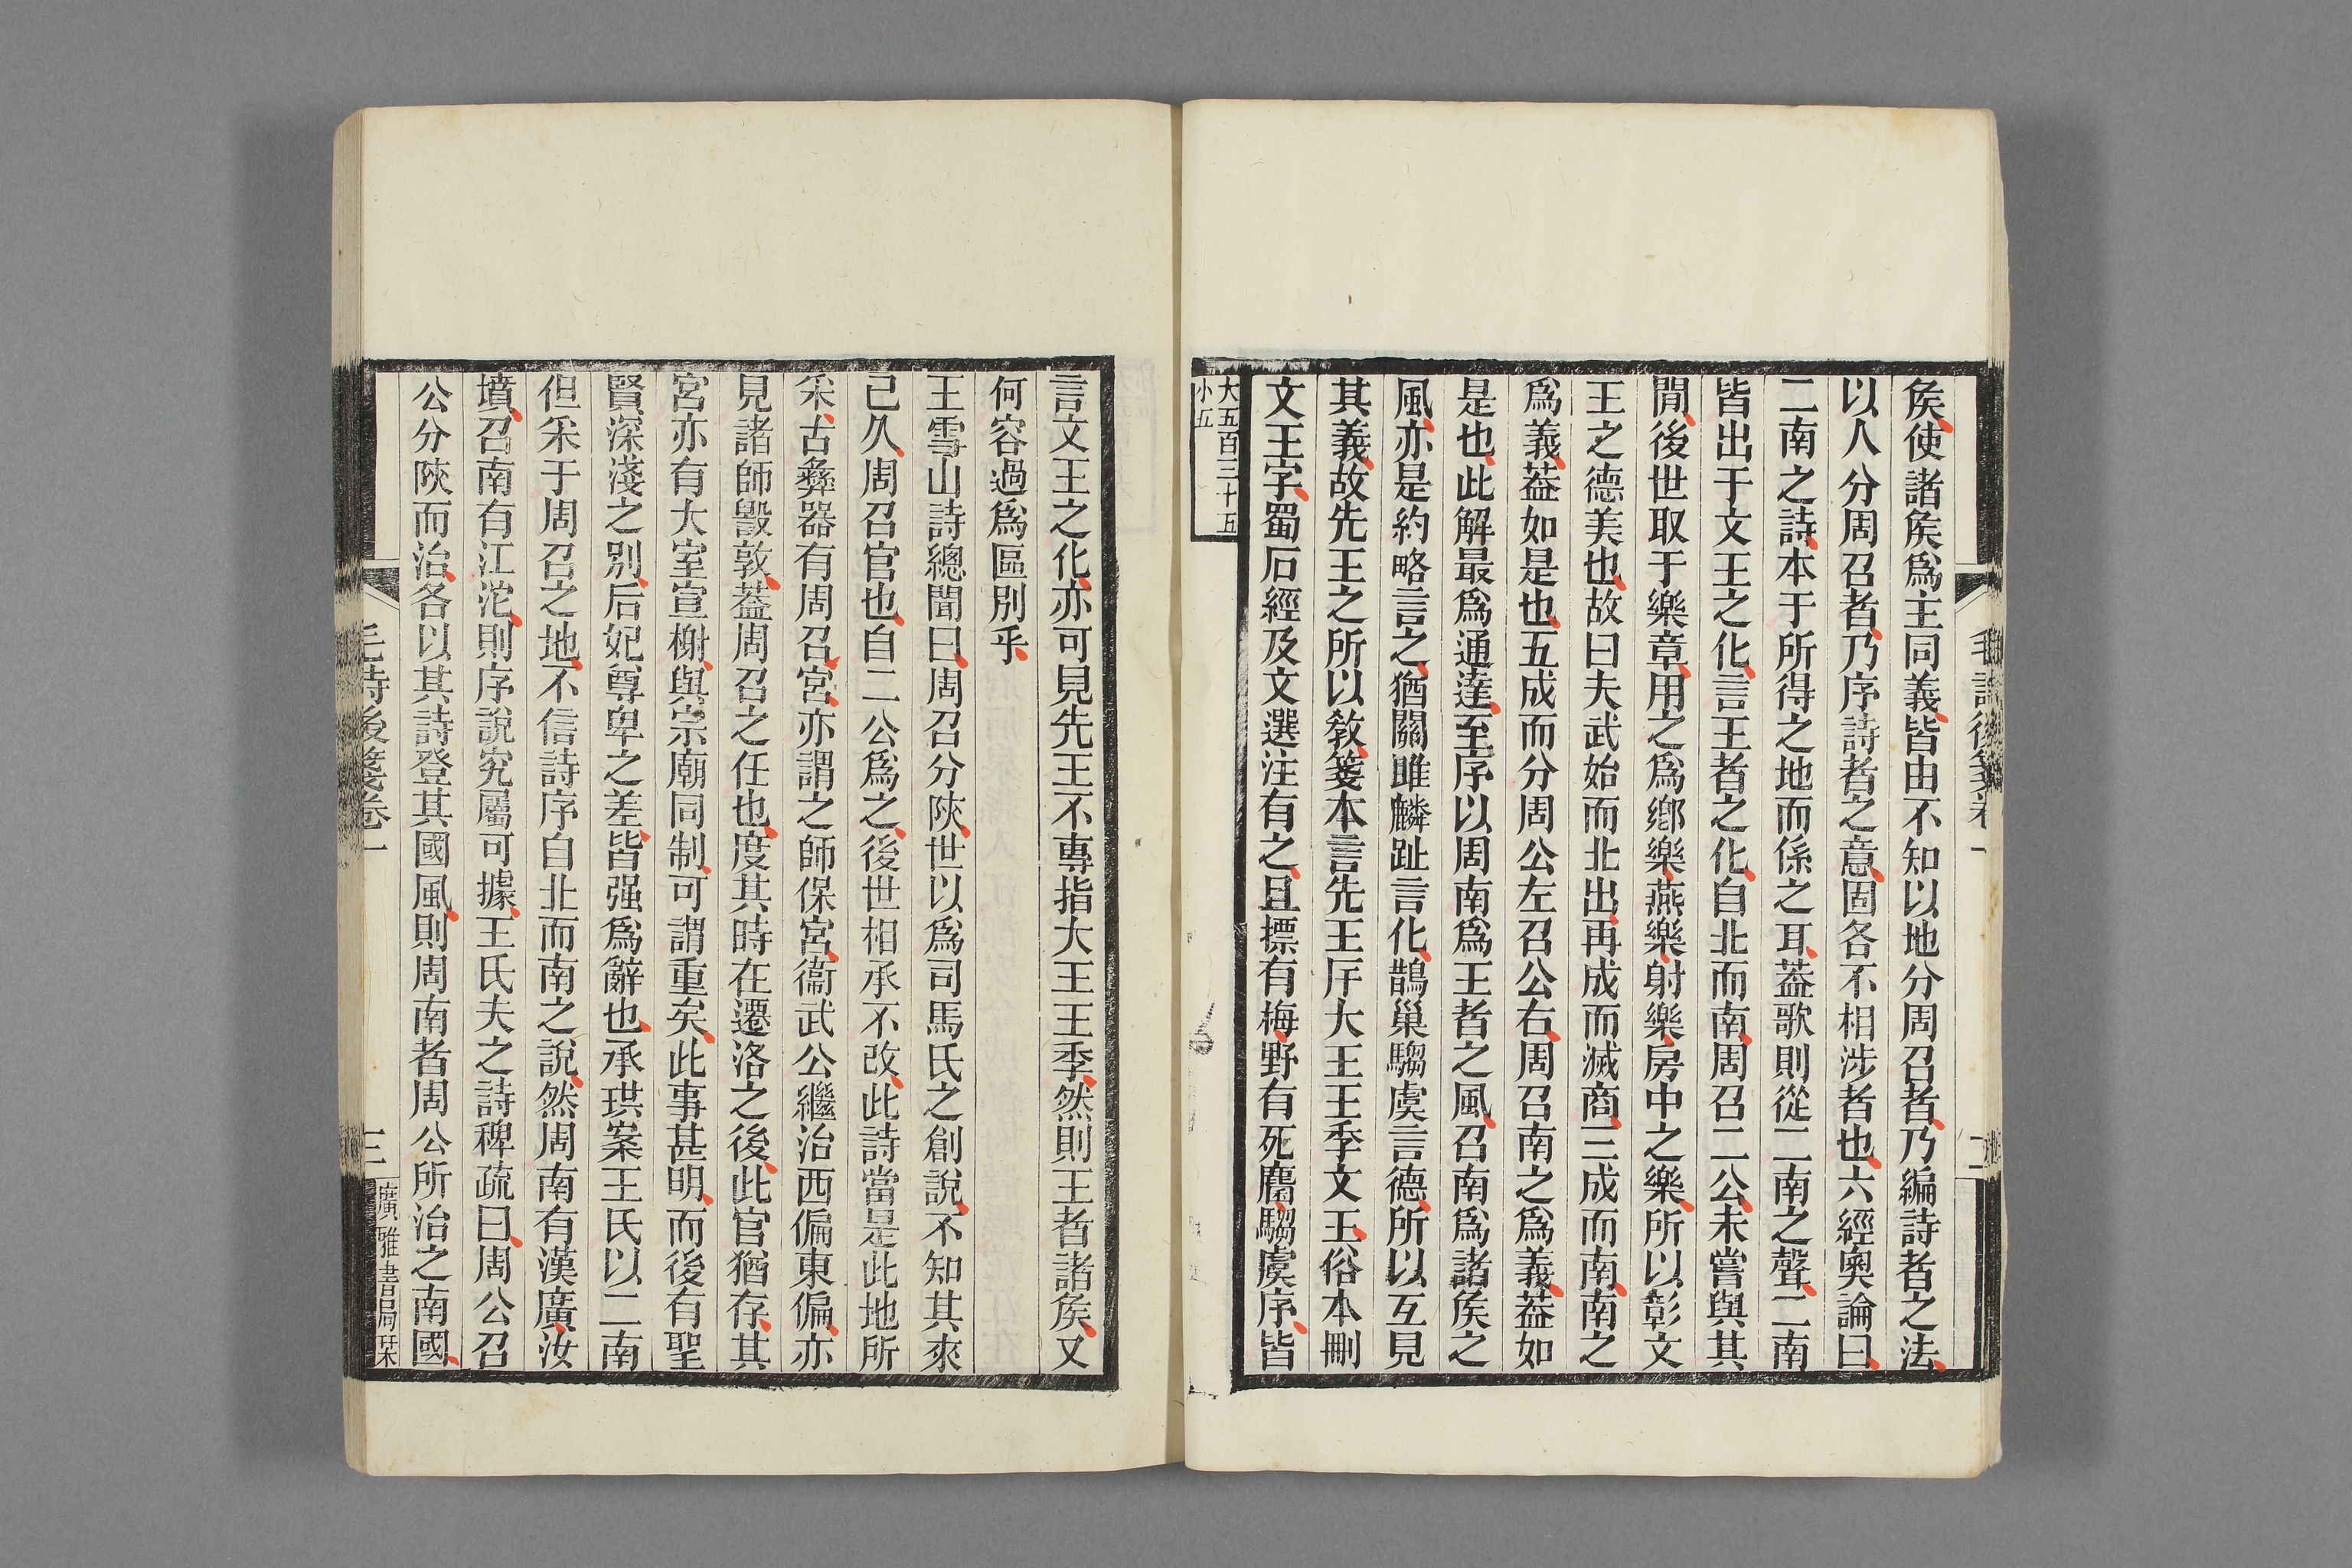 矦使諸矦爲主同義皆由不知以地分周召者乃編詩者之法
以人分周召者乃序詩者之意固各不相涉者也六經奧論曰
二南之詩本于所得之地而係之耳葢歌則從二南之聲二南
皆出于文王之化言王者之化自北而南周召二公未嘗與其
閒後世取于樂章用之爲鄉樂燕樂射樂房中之樂所以彰文
王之德美也故曰夫武始而北出再成而滅商三成而南南之
爲義葢如是也五成而分周公左召公右周召南之爲義葢如
是也此解最爲通達至序以周南爲王者之風召南爲諸矦之
風亦是約略言之猶關雎麟趾言化鵲巢騶虞言德所以互見
其義故先王之所以敎箋本言先王斥大王王季文王俗本刪
文王字蜀石經及文選注有之且摽有梅野有死麕騶虞序皆
大五百三十五
小五
言文王之化亦可見先王不專指大王王季然則王者諸矦又
何容過爲區別乎
王雪山詩總聞曰周召分陝世以爲司馬氏之創說不知其來
已久周召官也自二公爲之後世相承不改此詩當是此地所
采古彝器有周召宮亦謂之師保宮衞武公繼治西偏東偏亦
見諸師毀敦葢周召之任也度其時在遷洛之後此官猶存其
宮亦有大室宣榭與宗廟同制可謂重矣此事甚明而後有聖
賢深淺之別后妃尊卑之差皆强爲辭也承珙案王氏以二南
但采于周召之地不信詩序自北而南之說然周南有漢廣汝
墳召南有江沱則序說究屬可據王氏夫之詩稗疏曰周公召
公分陝而治各以其詩登其國風則周南者周公所治之南國
毛詩後箋卷一
三
廣雅書局栞